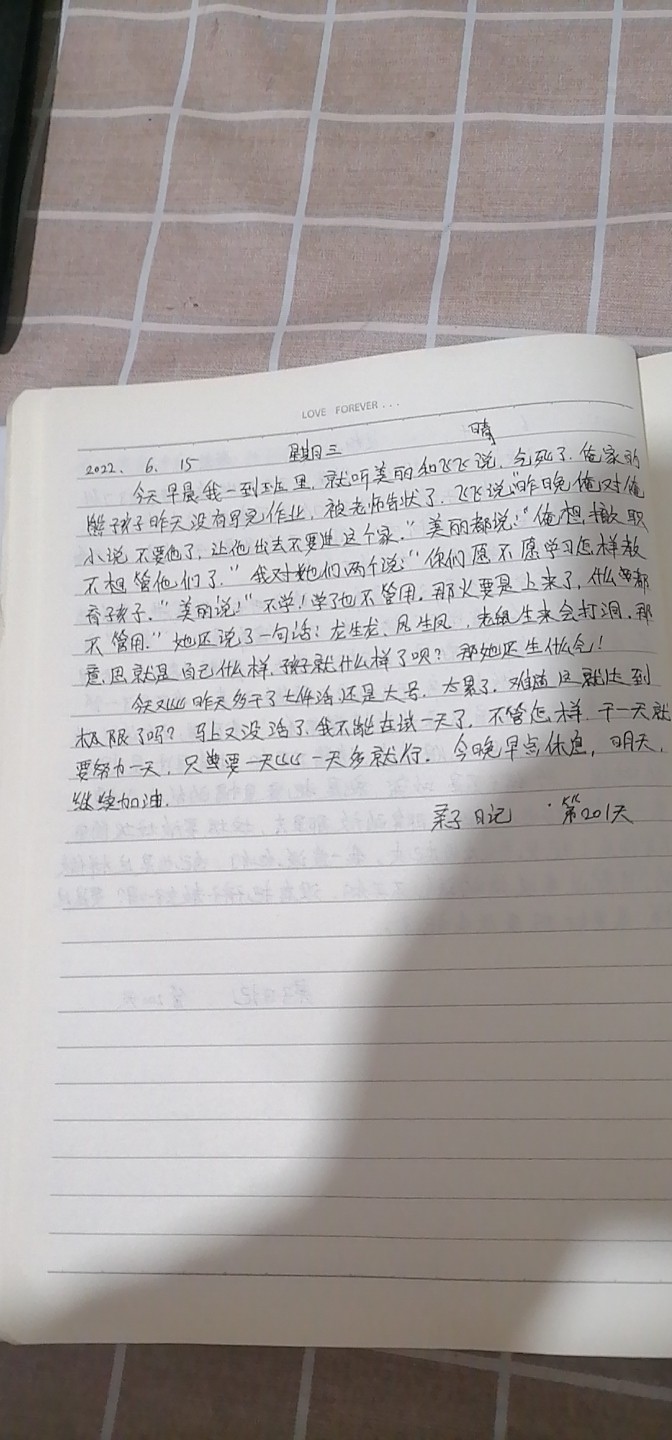 LOVE FOREVER...
2022. 6. 15 星期三 晴
今天早晨我一到班里,就听美丽和飞飞说,气死了.俺家的
孩子昨天没有写完作业,被老师告状了.飞飞说:"昨晚俺对俺
小说不要他了,让他出去不要进这个家."美丽都说:"俺想
不想管他们了."我对她们两个说:"你们愿不愿学习怎样教
育孩子."美丽说:"不学!学了也不管用.那火要是上来了,什么都
不管用."她还说了一句话:龙生龙、凤生凤,老鼠生来会打洞.那
意思就是自己什么样.孩子就什么样了呗?那她还生什么气!
今天又比昨天多干了七件活还是大号.太累了.难道这就达到
极限了吗?马上又没活了.我不能在试一天了.不管怎样.干一天就
要努力一天,只要一天比一天多就行.今晚早点休息,明天,
继续加油.
日记 · 第201天